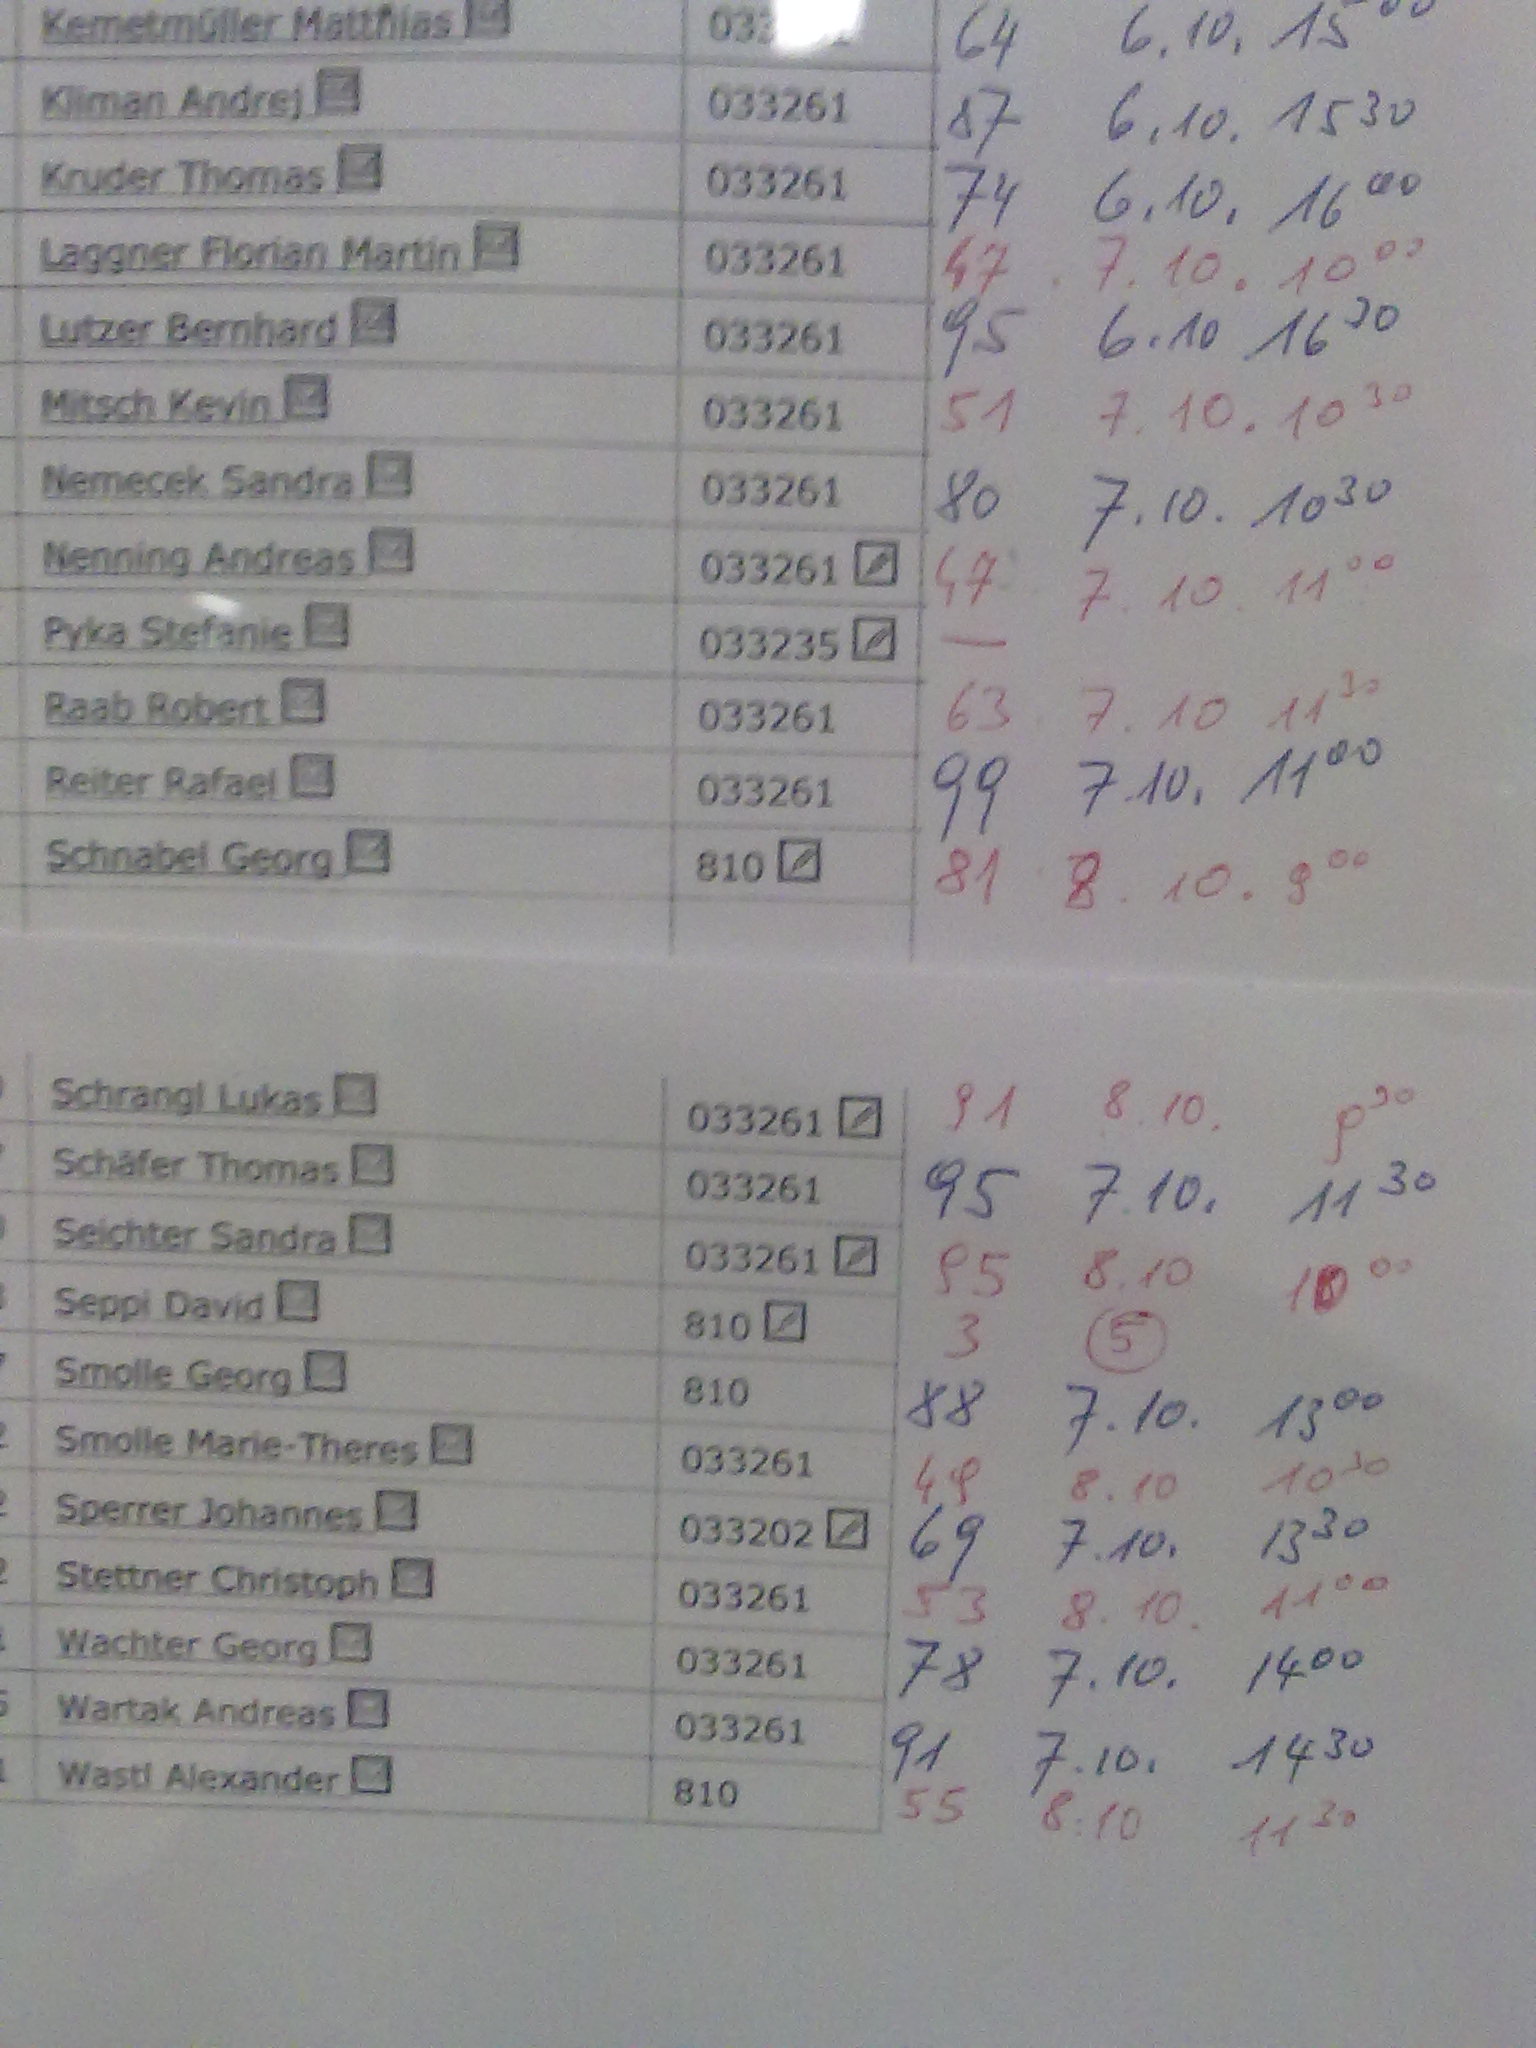 Kemetmüller Matthias 64 6.10. 15 00
Kliman Andrej 033261 87 6.10. 15 30
Kruder Thomas 033261 74 6.10. 16 00
Laggner Florian Martin 033261 47 7.10. 10 00
Lutzer Bernhard 033261 95 6.10 16 30
Mitsch Kevin 033261 51 7.10. 10 30
Nemecek Sandra 033261 80 7.10. 10 30
Nenning Andreas 033261 47 7.10. 11 00
Pyka Stefanie 033235 —
Raab Robert 033261 63 7.10 11 30
Reiter Rafael 033261 99 7.10. 11 00
Schnabel Georg 810 81 8.10. 9 00
Schrangl Lukas 033261 91 8.10. 9 30
Schäfer Thomas 033261 95 7.10. 11 30
Seichter Sandra 033261 95 8.10 10 00
Seppi David 810 3 5
Smolle Georg 810 88 7.10. 13 00
Smolle Marie-Theres 033261 49 8.10 10 30
Sperrer Johannes 033202 69 7.10. 13 30
Stettner Christoph 033261 53 8.10. 11 00
Wachter Georg 033261 78 7.10. 14 00
Wartak Andreas 033261 91 7.10. 14 30
Wastl Alexander 810 55 8.10 11 30